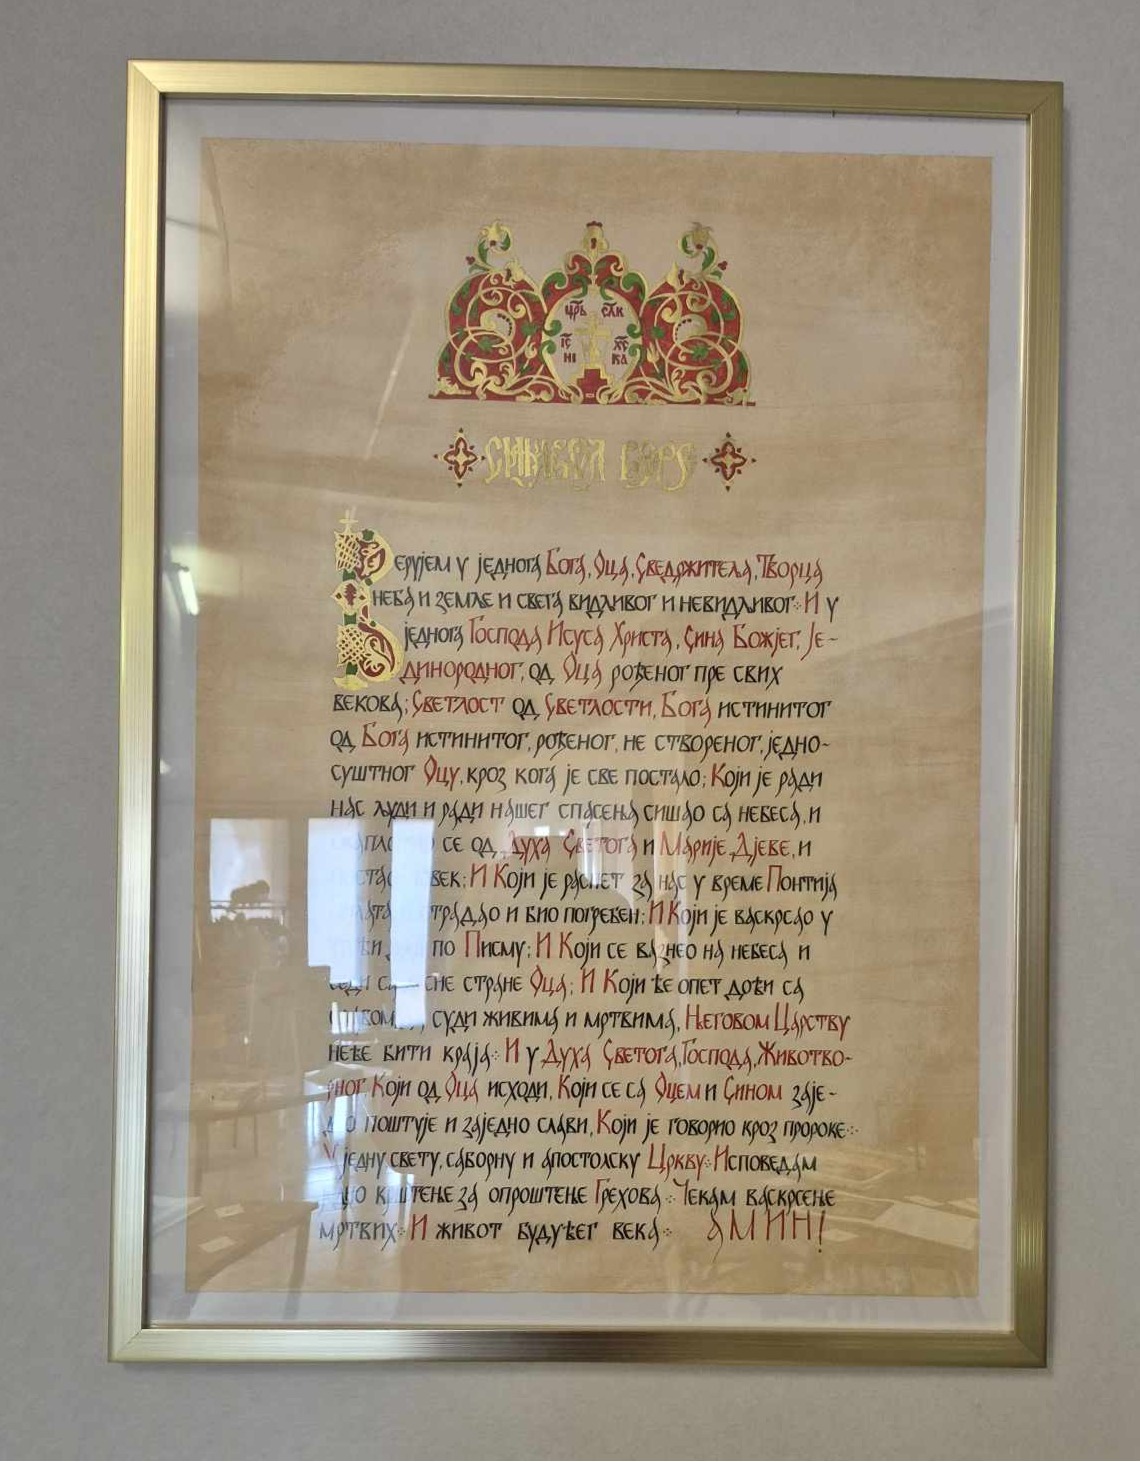 ЦР҃Ь СЛ҃К
ІС҃ ХС҃
НІ КА
СИМВОЛ ВЕРЕ
ВЕРУЈЕМ У ЈЕДНОГА БОГА, ОЦА, СВЕДРЖИТЕЉА, ТВОРЦА
НЕБА И ЗЕМЛЕ И СВЕГА ВИДЛИВОГ И НЕВИДЛИВОГ⁘ И У
ЈЕДНОГА ГОСПОДА ИСУСА ХРИСТА, СИНА БОЖЈЕГ, ЈЕ-
ДИНОРОДНОГ, ОД ОЦА РОЂЕНОГ ПРЕ СВИХ
ВЕКОВА; СВЕТЛОСТ ОД СВЕТЛОСТИ, БОГА ИСТИНИТОГ
ОД БОГА ИСТИНИТОГ, РОЂЕНОГ, НЕ СТВОРЕНОГ, ЈЕДНО-
СУШТНОГ ОЦУ, КРОЗ КОГА ЈЕ СВЕ ПОСТАЛО; КОЈИ ЈЕ РАДИ
НАС ЉУДИ И РАДИ НАШЕГ СПАСЕЊА СИШАО СА НЕБЕСА, И
СЕ ОД ДУХА СВЕТОГА И МАРИЈЕ ДЈЕВЕ, И
И КОЈИ ЈЕ РАСПЕТ ЗА НАС У ВРЕМЕ ПОНТИЈА
И БИО ПОГРЕБЕН; И КОЈИ ЈЕ ВАСКРСАО У
ПО ПИСМУ; И КОЈИ СЕ ВАЗНЕО НА НЕБЕСА И
СТРАНЕ ОЦА; И КОЈИ ЋЕ ОПЕТ ДОЋИ СА
СУДИ ЖИВИМА И МРТВИМА, ЊЕГОВОМ ЦАРСТВУ
НЕЋЕ БИТИ КРАЈА⁘ И У ДУХА СВЕТОГА, ГОСПОДА, ЖИВОТВО-
РНОГ, КОЈИ ОД ОЦА ИСХОДИ, КОЈИ СЕ СА ОЦЕМ И СИНОМ ЗАЈЕ-
ДНО ПОШТУЈЕ И ЗАЈЕДНО СЛАВИ, КОЈИ ЈЕ ГОВОРИО КРОЗ ПРОРОКЕ⁘
У ЈЕДНУ СВЕТУ, САБОРНУ И АПОСТОЛСКУ ЦРКВУ⁘ ИСПОВЕДАМ
ЈЕДНО КРШТЕЊЕ ЗА ОПРОШТЕЊЕ ГРЕХОВА⁘ ЧЕКАМ ВАСКРСЕЊЕ
МРТВИХ⁘ И ЖИВОТ БУДУЋЕГ ВЕКА⁘ АМИН!